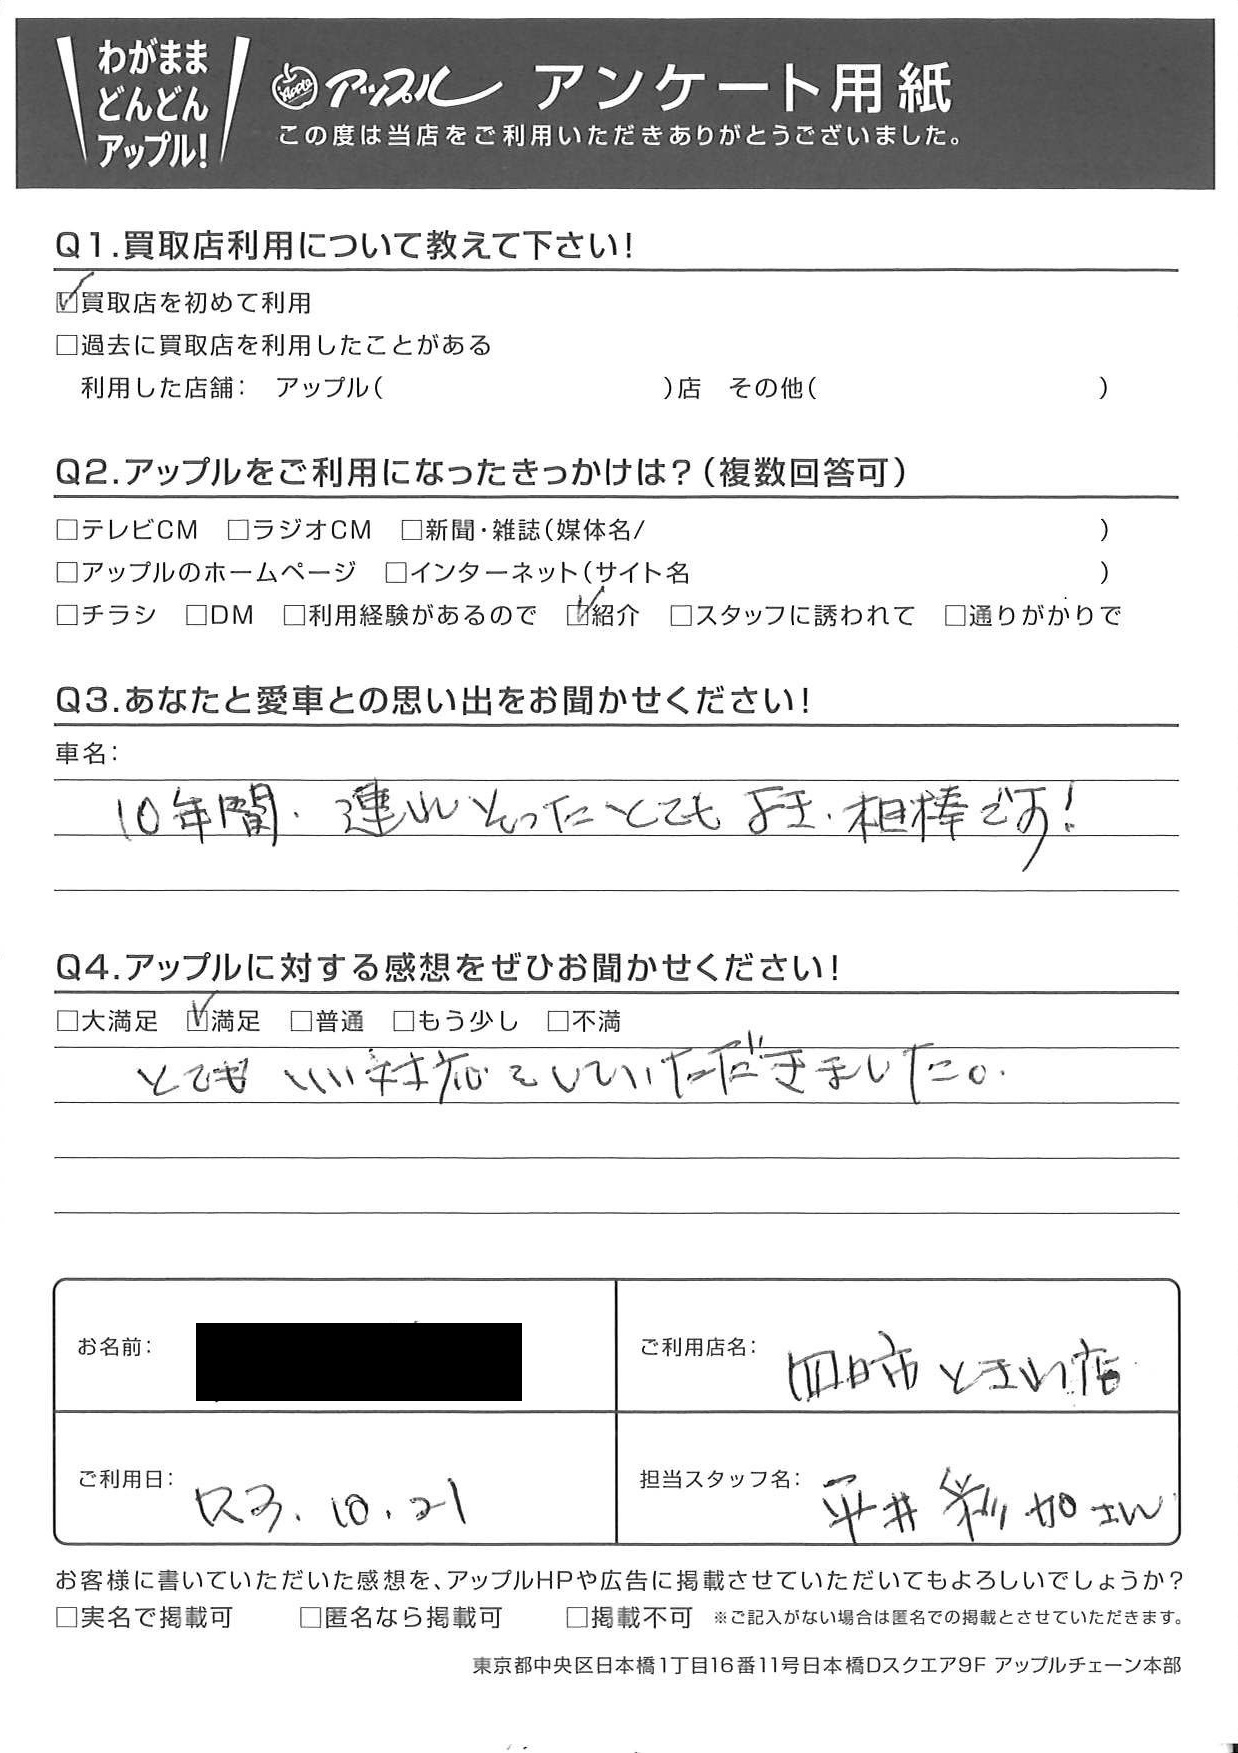 わがまま
どんどん
アップル!
Apple アップル アンケート用紙
この度は当店をご利用いただきありがとうございました。
Q1.買取店利用について教えて下さい!
☑買取店を初めて利用
□過去に買取店を利用したことがある
利用した店舗: アップル( )店 その他( )
Q2.アップルをご利用になったきっかけは?(複数回答可)
□テレビCM □ラジオCM □新聞・雑誌(媒体名/ )
□アップルのホームページ □インターネット(サイト名 )
□チラシ □DM □利用経験があるので ☑紹介 □スタッフに誘われて □通りがかりで
Q3.あなたと愛車との思い出をお聞かせください!
車名:
10年間、連れそったとてもよき、相棒です!
Q4.アップルに対する感想をぜひお聞かせください!
□大満足 ☑満足 □普通 □もう少し □不満
とてもいい対応をしていただきました。
お名前:
ご利用店名: 四日市ときわ店
ご利用日: R3.10.21
担当スタッフ名: 平井 加さん
お客様に書いていただいた感想を、アップルHPや広告に掲載させていただいてもよろしいでしょうか?
□実名で掲載可 □匿名なら掲載可 □掲載不可 ※ご記入がない場合は匿名での掲載とさせていただきます。
東京都中央区日本橋1丁目16番11号日本橋Dスクエア9F アップルチェーン本部